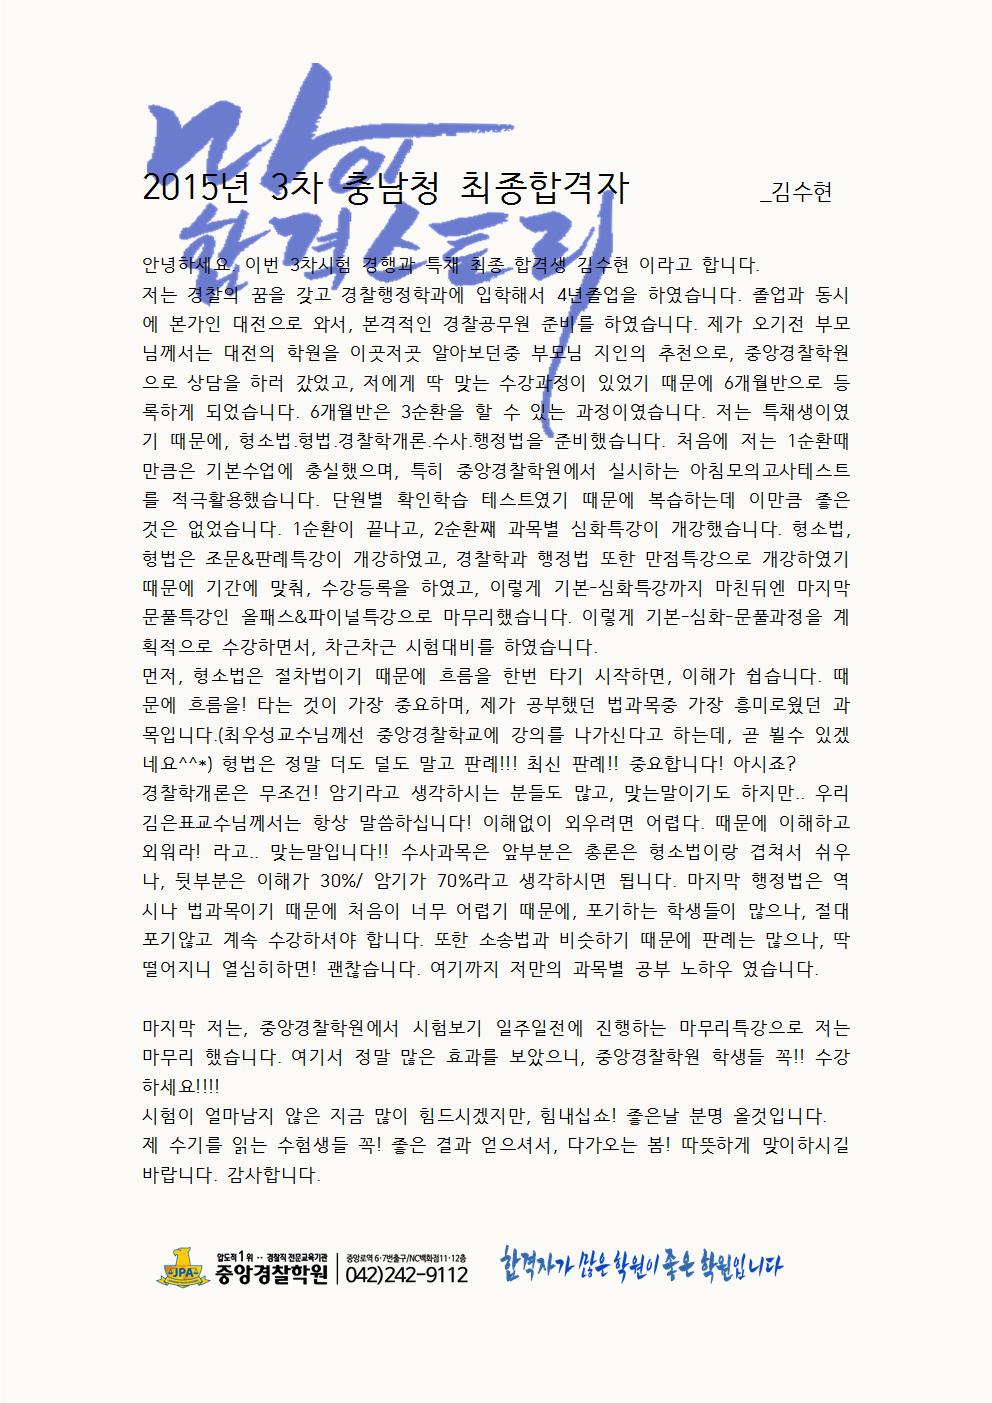 마이
합격스토리
2015년 3차 충남청 최종합격자 _김수현
안녕하세요. 이번 3차시험 경행과 특채 최종 합격생 김수현 이라고 합니다.
저는 경찰의 꿈을 갖고 경찰행정학과에 입학해서 4년졸업을 하였습니다. 졸업과 동시
에 본가인 대전으로 와서, 본격적인 경찰공무원 준비를 하였습니다. 제가 오기전 부모
님께서는 대전의 학원을 이곳저곳 알아보던중 부모님 지인의 추천으로, 중앙경찰학원
으로 상담을 하러 갔었고, 저에게 딱 맞는 수강과정이 있었기 때문에 6개월반으로 등
록하게 되었습니다. 6개월반은 3순환을 할 수 있는 과정이였습니다. 저는 특채생이였
기 때문에, 형소법.형법.경찰학개론.수사.행정법을 준비했습니다. 처음에 저는 1순환때
만큼은 기본수업에 충실했으며, 특히 중앙경찰학원에서 실시하는 아침모의고사테스트
를 적극활용했습니다. 단원별 확인학습 테스트였기 때문에 복습하는데 이만큼 좋은
것은 없었습니다. 1순환이 끝나고, 2순환째 과목별 심화특강이 개강했습니다. 형소법,
형법은 조문&판례특강이 개강하였고, 경찰학과 행정법 또한 만점특강으로 개강하였기
때문에 기간에 맞춰, 수강등록을 하였고, 이렇게 기본-심화특강까지 마친뒤엔 마지막
문풀특강인 올패스&파이널특강으로 마무리했습니다. 이렇게 기본-심화-문풀과정을 계
획적으로 수강하면서, 차근차근 시험대비를 하였습니다.
먼저, 형소법은 절차법이기 때문에 흐름을 한번 타기 시작하면, 이해가 쉽습니다. 때
문에 흐름을! 타는 것이 가장 중요하며, 제가 공부했던 법과목중 가장 흥미로웠던 과
목입니다.(최우성교수님께선 중앙경찰학교에 강의를 나가신다고 하는데, 곧 뵐수 있겠
네요^^*) 형법은 정말 더도 덜도 말고 판례!!! 최신 판례!! 중요합니다! 아시죠?
경찰학개론은 무조건! 암기라고 생각하시는 분들도 많고, 맞는말이기도 하지만.. 우리
김은표교수님께서는 항상 말씀하십니다! 이해없이 외우려면 어렵다. 때문에 이해하고
외워라! 라고.. 맞는말입니다!! 수사과목은 앞부분은 총론은 형소법이랑 겹쳐서 쉬우
나, 뒷부분은 이해가 30%/ 암기가 70%라고 생각하시면 됩니다. 마지막 행정법은 역
시나 법과목이기 때문에 처음이 너무 어렵기 때문에, 포기하는 학생들이 많으나, 절대
포기않고 계속 수강하셔야 합니다. 또한 소송법과 비슷하기 때문에 판례는 많으나, 딱
떨어지니 열심히하면! 괜찮습니다. 여기까지 저만의 과목별 공부 노하우 였습니다.
마지막 저는, 중앙경찰학원에서 시험보기 일주일전에 진행하는 마무리특강으로 저는
마무리 했습니다. 여기서 정말 많은 효과를 보았으니, 중앙경찰학원 학생들 꼭!! 수강
하세요!!!!
시험이 얼마남지 않은 지금 많이 힘드시겠지만, 힘내십쇼! 좋은날 분명 올것입니다.
제 수기를 읽는 수험생들 꼭! 좋은 결과 얻으셔서, 다가오는 봄! 따뜻하게 맞이하시길
바랍니다. 감사합니다.
JPA 압도적 1위 ·· 경찰직 전문교육기관 중앙로역 6·7번출구/NC백화점11·12층
중앙경찰학원 042)242-9112 합격자가 많은 학원이 좋은 학원입니다